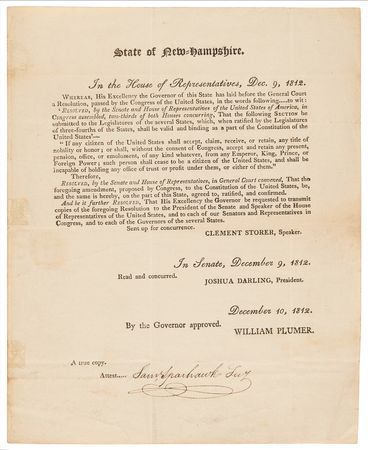 State of New-Hampshire.
In the House of Representatives, Dec. 9, 1812.
WHEREAS, His Excellency the Governor of this State has laid before the General Court
a Resolution, passed by the Congress of the United States, in the words following....to wit:
"RESOLVED, by the Senate and House of Representatives of the United States of America, in
Congress assembled, two-thirds of both Houses concurring, That the following SECTION be
submitted to the Legislatures of the several States, which, when ratified by the Legislatures
of three-fourths of the States, shall be valid and binding as a part of the Constitution of the
United States'—
"If any citizen of the United States shall accept, claim, receive, or retain, any title of
nobility or honor; or shall, without the consent of Congress, accept and retain any present,
pension, office, or emolument, of any kind whatever, from any Emperor, King, Prince, or
Foreign Power; such person shall cease to be a citizen of the United States, and shall be
incapable of holding any office of trust or profit under them, or either of them."
Therefore,
RESOLVED, by the Senate and House of Representatives, in General Court convened, That the
foregoing amendment, proposed by Congress, to the Constitution of the United States, be,
and the same is hereby, on the part of this State, agreed to, ratified, and confirmed.
And be it further RESOLVED, That His Excellency the Governor be requested to transmit
copies of the foregoing Resolution to the President of the Senate and Speaker of the House
of Representatives of the United States, and to each of our Senators and Representatives in
Congress, and to each of the Governors of the several States.
Sent up for concurrence.
CLEMENT STORER, Speaker.
In Senate, December 9, 1812.
Read and concurred.
JOSHUA DARLING, President.
December 10, 1812.
By the Governor approved.
WILLIAM PLUMER.
A true copy.
Attest..... Sam Sparhawk Secy